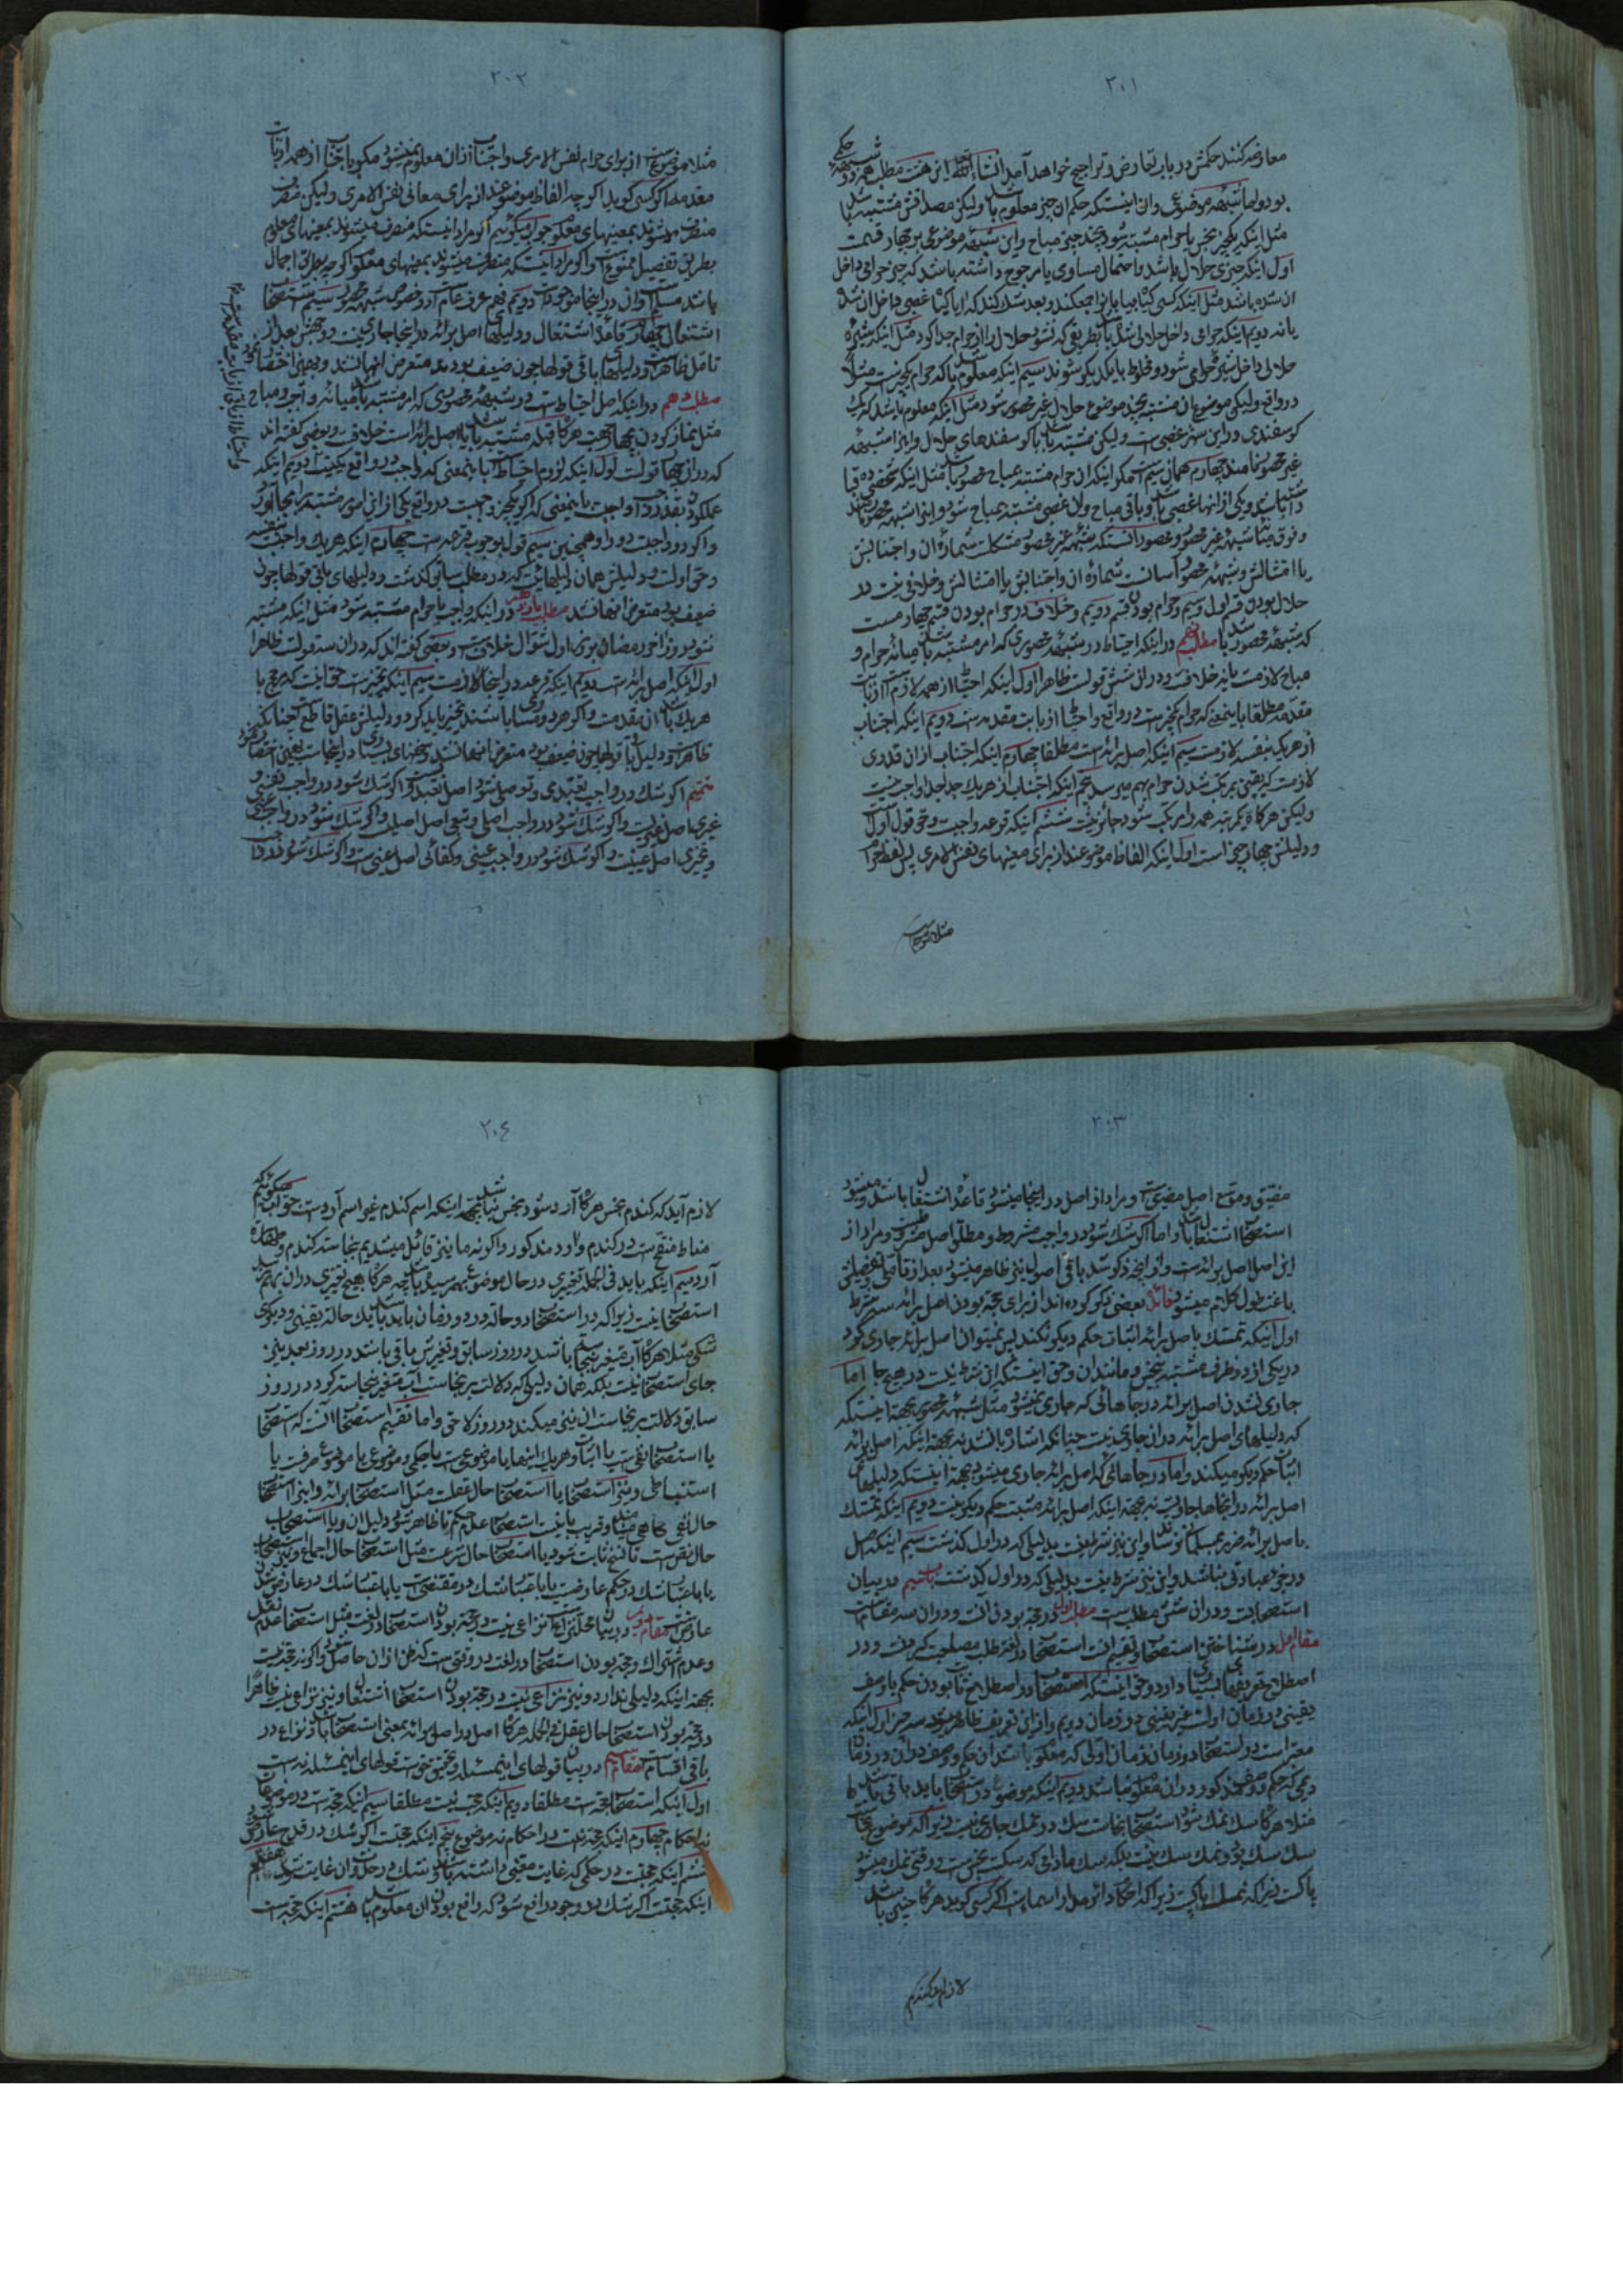 ٢٠١
معارضه کنند حکمش در باب تعارض و تراجیح خواهد آمد انشاء الله این هفت مطلب همه در شبهه حکمی
بود و اما شبهه موضوعی و ان اینست که حکم ان چیز معلوم باشد ولیکن مصداقش مشتبه باشد
مثل اینکه یکچیز نجس یا حرام مشتبه شود بچند چیز مباح و این شبهه موضوعی بر چهار قسمست
اول اینکه چیزی حلال باشد و احتمال مساوی یا مرجوح داشته باشد که چیز حرامی داخل
ان شده باشد مثل اینکه کسی کتابها یا پارا جمع کند و بعد شک کند که ایا کتاب غصبی داخل ان شده
یا نه دویم اینکه حرامی داخل حلالی شده باشد بطریقی که نشود حلال را از حرام جدا کرد مثل اینکه شیره
حلالی داخل شیره حرامی شود و مخلوط با یکدیگر شوند سیم اینکه معلوم باشد که حرام یکچیزست مثلا
در واقع ولیکن موضوع ان مشتبه بچند موضوع حلال غیر محصور شود مثل اینکه معلوم باشد که یک
کوسفندی در این شهر غصبی است ولیکن مشتبه باشد با کوسفندهای حلال و اینرا شبهه
غیر محصور نامند چهارم همان سیم است مکر اینکه ان حرام مشتبه بمباح محصور باشد مثل اینکه شخصی ده قبا
داشته باشد و یکی از انها غصبی باشد و باقی مباح و ان غصبی مشتبه بمباح شود و اینرا شبهه محصور نامند
و فرق میان شبهه غیر محصور و محصور انست که شبهه غیر محصور مشکلست شماره ان و اجتنابش
یا امتثالش و شبهه محصور آسانست شماره ان و اجتنابش یا امتثالش و خلافی نیست در
حلال بودن قسم اول و سیم و حرام بودن قسم دویم و خلاف در حرام بودن قسم چهارمست
که شبهه محصور باشد مطلب نهم در اینکه احتیاط در شبهه محصوری که امر مشتبه باشد میانه حرام و
مباح لازمست یا نه خلافست و در ان شش قولست ظاهرا اول اینکه احتیاط از همه لازم است از باب
مقدمه مطلقا باینمعنی که حرام یکچیزست در واقع و احتیاط از بابت مقدمه است دویم اینکه اجتناب
از هر یک بنفسه لازمست سیم اینکه اصل برائتست مطلقا چهارم اینکه اجتناب از ان قدری
لازمست که یقین بمرتکب شدن حرام بهم میرسد پنجم اینکه اجتناب از هر یک جدا جدا واجب نیست
ولیکن هرگاه یکمرتبه همه را مرتکب شود جائز نیست ششم اینکه قرعه واجبست و حق قول اول است
و دلیلش چهار چیز است اول اینکه الفاظ موضوعند از برای معنیهای نفس الامری پس لفظ حرام
مثلا موضوع است
٢٠٢
مثلا موضوع است از برای حرام نفس الامری و اجتناب از ان معلوم نمیشود مکر با اجتناب از همه از باب
مقدمه اکر کسی کوید اکر چه الفاظ موضوعند از برای معانی نفس الامری ولیکن منصرف
منصرف میشوند بمعنیهای معلوم جواب میکوئیم اکر مراد اینست که منصرف میشوند بمعنیهای معلوم
بطریق تفصیل ممنوع است و اکر مراد اینست که منصرف میشوند بمعنیهای معلوم اکر چه بطریق اجمال
باشد مسلم است و ان در اینجا موجود است دویم فهم عرف عام است در خصوص شبهه محصور سیم استصحاب
اشتغال چهارم قاعده اشتغال و دلیلهای اصل برائه در اینجا جاری نیست و وجهش بعد از
تامل ظاهر است و دلیلهای باقی قولها چون ضعیف بودند متعرض انها نشدند و بجهة اختصار
مطلب دهم در اینکه اصل احتیاط است در شبهه محصوری که امر مشتبه باشد میانه واجب و مباح
مثل نماز کردن بچهار جهت هرگاه قبله مشتبه باشد یا اصل برائتست خلافست و بعضی کفته اند
که در ان چهار قولست اول اینکه لزوم احتیاط است باینمعنی که واجب در واقع یکیست دویم اینکه
عملکردن بقدر واجب واجبست باینمعنی که اکر یکچیز واجبست در واقع یکی از این امور مشتبه را بجا آورد
و اکر دو واجبست دو را و همچنین سیم قول بوجوب قرعه است چهارم اینکه هر یک واجبست بنفسه
و حق اولست و دلیلش همان دلیلهائیست که در مطلب سابق گذشت و دلیلهای باقی قولها چون
ضعیف بود متعرض انها نشدند مطلب یازدهم در اینکه واجب با حرام مشتبه شود مثل اینکه مشتبه
شود روز اخر رمضان بروز اول شوال خلافست و بعضی کفته اند که در ان سه قولست ظاهرا
اول اینکه اصل برائتست دویم اینکه قرعه در اینجا لازمست سیم اینکه تخییرست حق اینست که ترجیح با
هر یک باشد ان مقدمست و اکر هر دو مساوی باشند تخییر باید کرد و دلیلش عقل قاطع است چنانکه
ظاهر است و دلیل باقی قولها چون ضعیف بود متعرض انها نشدند و بنای این رساله در اینجاست بهمین اختصار میشود
تتمیم اکر شک در واجب تعبدی و توصلی شود اصل تعبد است و اکر شک شود در واجب نفسی و
غیری اصل غیریست و اکر شک شود در واجب اصلی و تبعی اصل اصلیست و اکر شک شود در واجب عینی
و تخییری اصل عینیست و اکر شک شود در واجب عینی و کفائی اصل عینیست و اکر شک شود در واجب
٢٠٣
مضیق و موسع اصل مضیق است و مراد از اصل در اینجا میشود قاعده اشتغال باشد و میشود
استصحاب اشتغال باشد و اما اکر شک شود در واجب مشروط و مطلق اصل مشروطست و مراد از
این اصل اصل برائتست و از انچه ذکر شد باقی اصول نیز ظاهر میشود بعد از تامل و تفصیلش
باعث طول کلام میشود فائده بعضی ذکر کرده اند از برای حجة بودن اصل برائه سه شرط
اول اینکه تمسک باصل برائه اثبات حکم دیکر نکند پس نمیتوان اصل برائه جاری کرد
در یکی از دو ظرف مشتبه بنجس و مانند ان و حق اینست که این شرط نیست در هیچ جا اما
جاری نشدن اصل برائه در جاهائی که جاری نمیشود مثل شبهه محصور بجهة اینست که
که دلیلهای اصل برائه در ان جاری نیست چنانکه اشاره بان شد نه بجهة اینکه اصل برائه
اثبات حکم دیکر میکند و اما در جاهائی که اصل برائه جاری میشود بجهة اینست که دلیلهای
اصل برائه در انجاها جاریست نه بجهة اینکه اصل برائه مثبت حکم دیکر نیست دویم اینکه تمسک
باصل برائه ضرر بمسلمانی نرساند و این نیز شرط نیست بدلیلی که در اول گذشت سیم اینکه اصل
در جزء عبادتی نباشد و این نیز شرط نیست بدلیلی که در اول گذشت باب سیم در بیان
استصحابست و در ان شش مطلب است مطلب اول در حجة بودن انست و در ان سه مقام است
مقام اول در شناختن استصحاب و تقسیم انست استصحاب در لغت طلب مصاحبت کردنست و در
اصطلاح تعریفهای بسیاری دارد و حق اینست که استصحاب در اصطلاح ثابت بودن حکم یا وصف
یقینی در زمان اولست غیر یقینی در زمان دویم و از این تعریف ظاهر میشود سه چیز اول اینکه
معتبر است در استصحاب دو زمان زمان اولی که معلوم باشد ان حکم و وصف در ان و زمان
دویمی که حکم و وصف مذکور در ان معلوم نباشد دویم اینکه موضوع در استصحاب باید باقی باشد
مثلا هرگاه سک نمک شود استصحاب نجاست سک در نمک جاری نیست زیرا که موضوع نجاست
سک سک بود و نمک سک نیست بلکه سک مادامی که سکست نجس است و وقتی نمک میشود
پاکست زیرا که نمک پاکست زیرا که احکام دائر مدار اسماء است اکر کسی کوید هرگاه چنین باشد
لازم آید که کندم
٢٠٤
لازم آید که کندم نجس هرگاه آرد شود نجس نباشد بجهة اینکه اسم کندم غیر اسم آرد است جواب میکوئیم که
مناط منقح است در کندم و ارد مذکور و اکر نه ما نیز قائل میشدیم بنجاست کندم و طهارت
آرد سیم اینکه باید فی الجمله تغییری در حال موضوع بهم رسیده باشد چه هرگاه هیچ تغییری در ان بهم نرسد
استصحاب نیست زیرا که در استصحاب دو حالة در دو زمان باید باشد یک حالة یقینی و دیکری
شکی مثلا هرگاه آب متغیر بنجاست باشد در روز سابق و تغیرش باقی باشد در روز بعد نیز
جای استصحاب نیست بلکه همان دلیلی که دلالت بر نجاست آب متغیر بنجاست کرد در روز
سابق دلالت بر نجاست ان نیز میکند در روز لاحق و اما تقسیم استصحاب انست که استصحاب
یا استصحاب نفی است یا اثبات و هر یک اینها یا موضوعیست یا حکمی و موضوعی یا موضوع صرفست یا
استنباطی و نیز استصحاب یا استصحاب حال عقلست مثل استصحاب برائه و اینرا استصحاب
حال نفی کاهی مینامند و قریب باینست استصحاب عدم حکم تا ظاهر شدن دلیل ان و یا استصحاب
حال نص است تا نسخ ثابت شود یا استصحاب حال شرعست مثل استصحاب حال اجماع و نیز استصحاب
یا باعتبار شک در حکم عارضست یا باعتبار شک در مقتضی است یا باعتبار شک در عارض شدن
عارض است مقام دویم در بیان محل نزاعست نزاعی نیست در حجة بودن استصحاب در لغت مثل استصحاب عدم نقل
و عدم اشتراک و حجة بودن استصحاب در لغت در وقتی است که ظن از ان حاصل شود و اکر نه حجة نیست
بجهة اینکه دلیلی ندارد و نیز نزاعی نیست در حجة بودن استصحاب اشتغال و نیز نزاعی نیست ظاهرا
در حجة بودن استصحاب حال عقل فی الجمله هرگاه اصل در اصل برائه بمعنی استصحاب باشد و نزاع در
باقی اقسام است مقام سیم در بیان قولهای اینمسئله و تحقیق حق است قولهای اینمسئله نه است
اول اینکه استصحاب حجة است مطلقا دویم اینکه حجت نیست مطلقا سیم اینکه حجة است در موضوعات
نه احکام چهارم اینکه حجة است در احکام نه موضوع پنجم اینکه حجتست اکر شک در قدح عارض شود
ششم اینکه حجتست در حکمی که غایت معینی داشته باشد و شک در حدوث ان غایت شود هفتم
اینکه حجتست اکر شک در وجود رافع شود که رافع بودن ان معلوم باشد هشتم اینکه حجة است